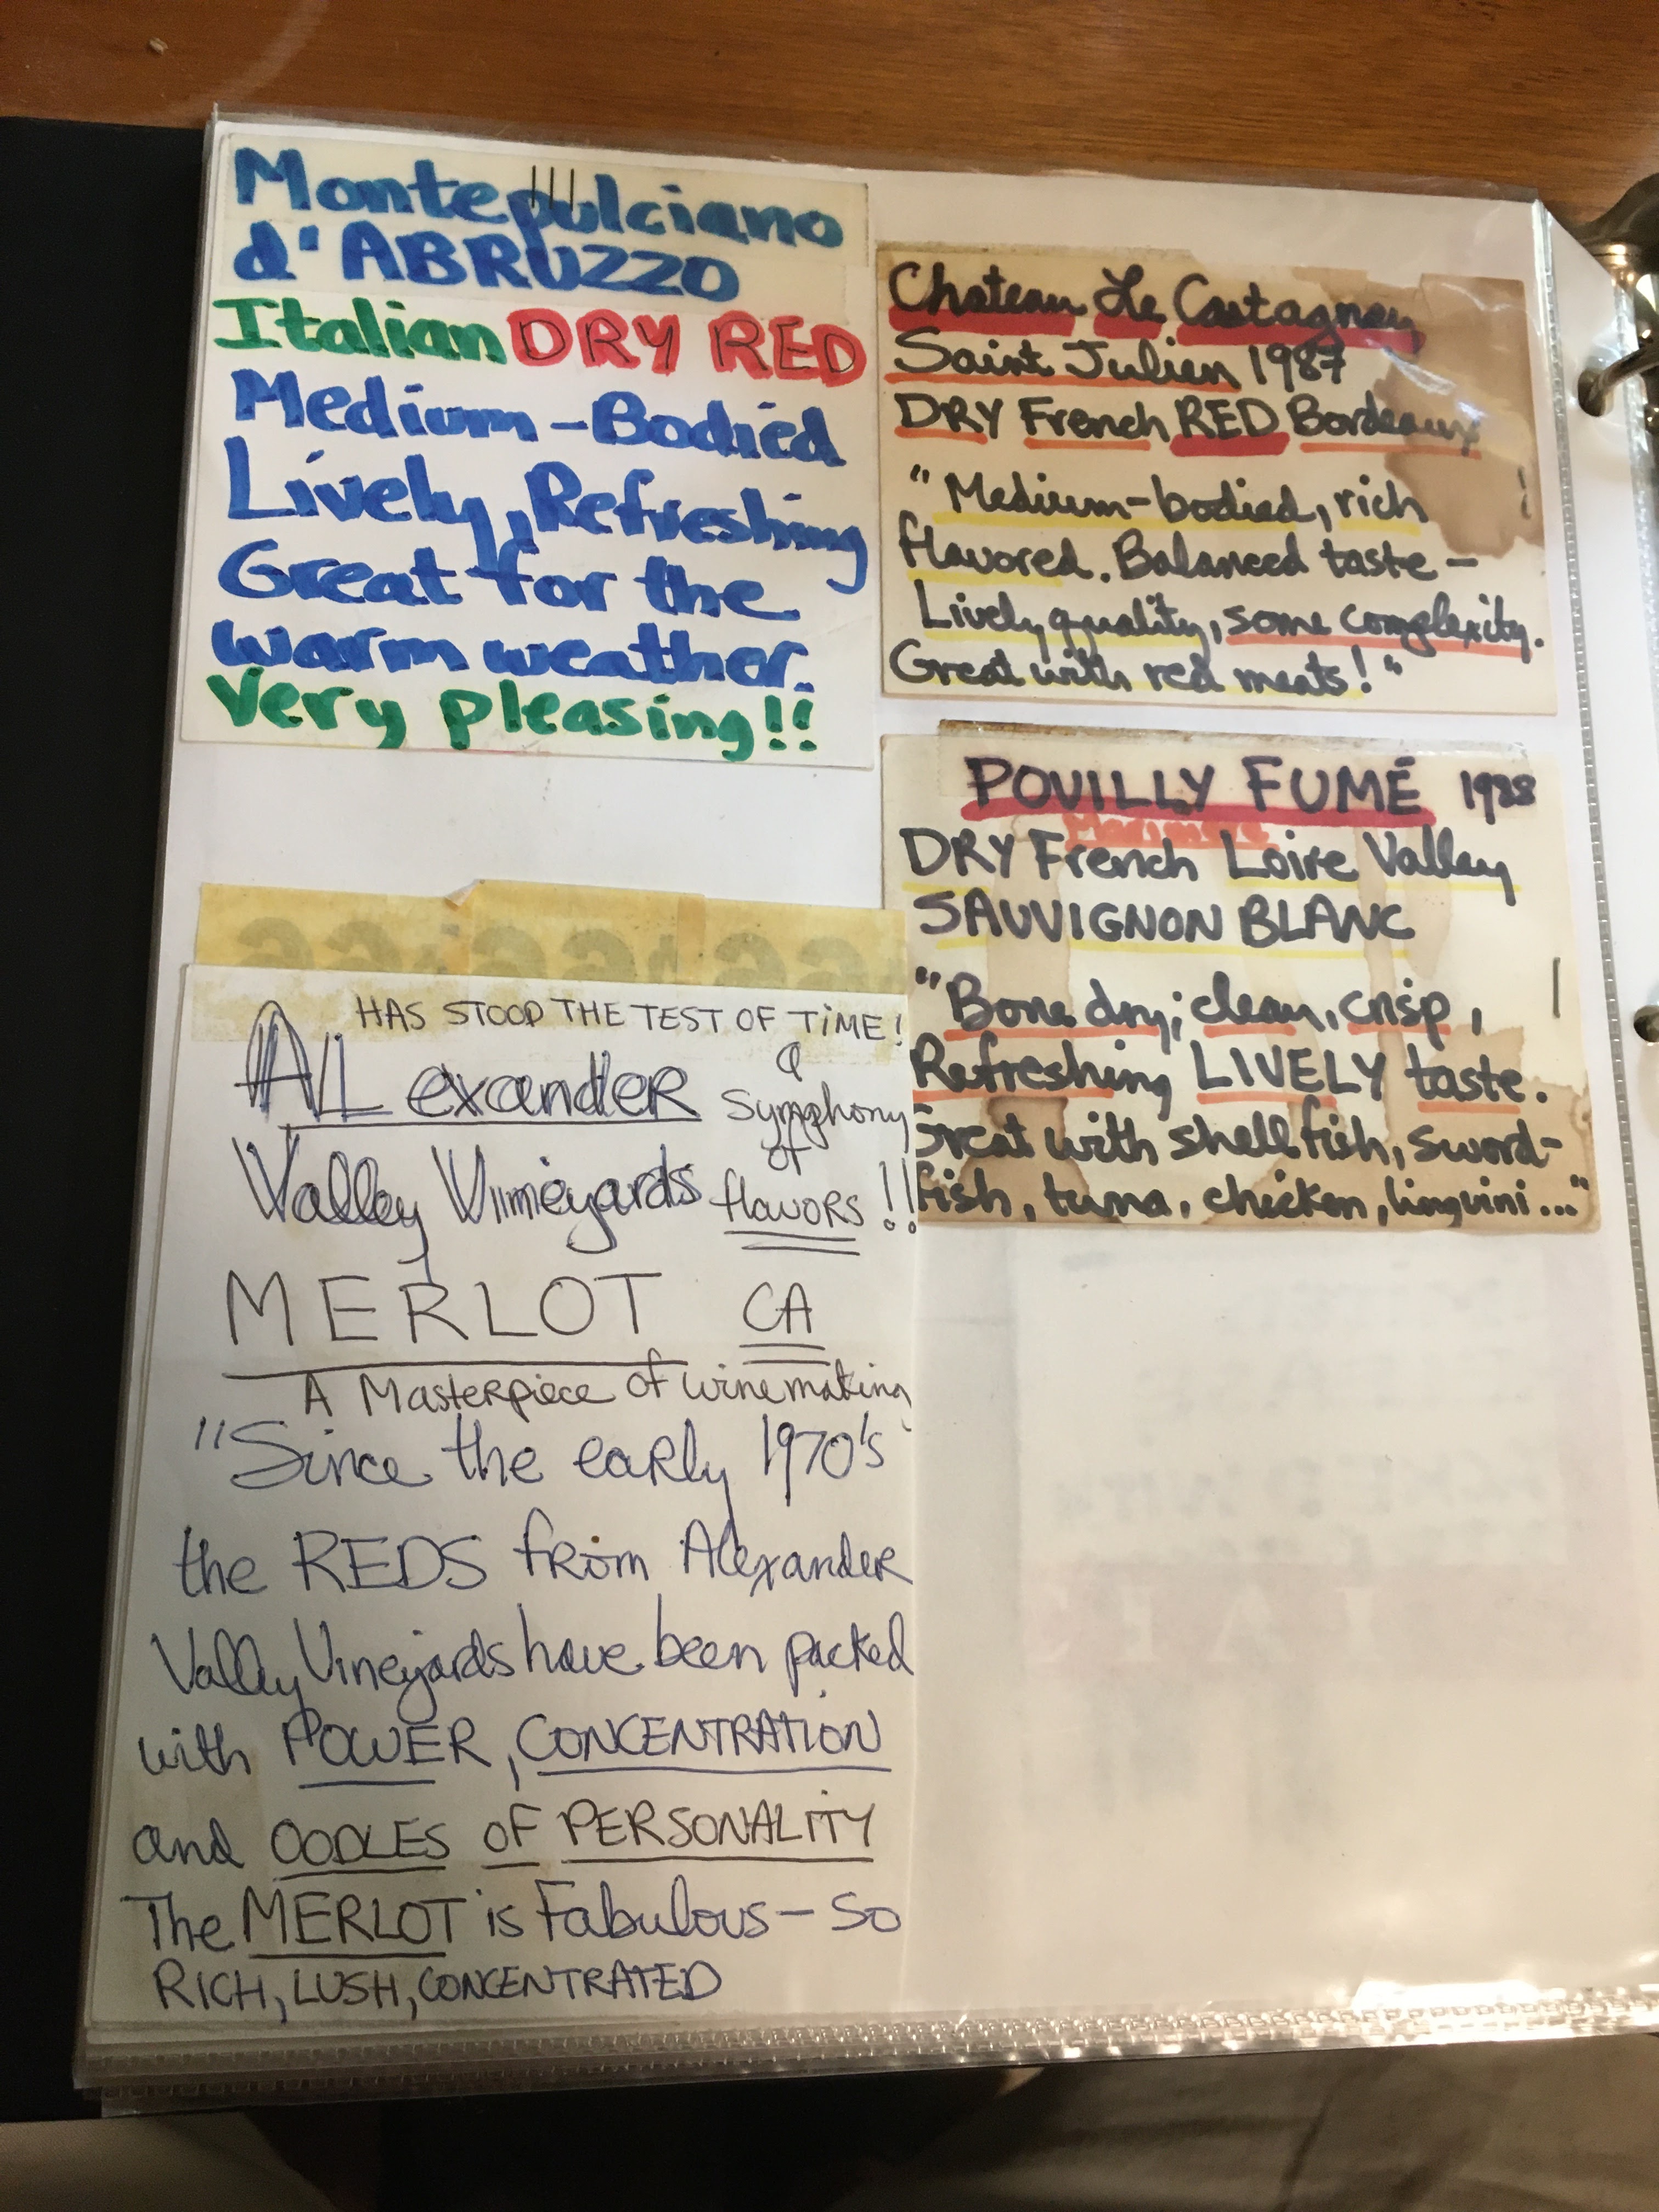 Montepulciano
d'ABRUZZO
Italian DRY RED
Medium-Bodied
Lively, Refreshing
Great for the
warm weather.
Very pleasing!!
Chateau Le Castagney
Saint Julien 1987
DRY French RED Bordeaux
"Medium-bodied, rich
flavored. Balanced taste-
Lively quality, some complexity.
Great with red meats!"
POUILLY FUMÉ 1988
DRY French Loire Valley
SAUVIGNON BLANC
"Bone dry; clean, crisp,
Refreshing LIVELY taste.
Great with shellfish, sword-
fish, tuna, chicken, linguini..."
HAS STOOD THE TEST OF TIME!
ALexandeR
Valley Vineyards
a
Symphony
of
flavoRs!!
MERLOT CA
A Masterpiece of winemaking
"Since the eaRly 1970's
the REDS fRom AlexandeR
Valley Vineyards have been packed
with POWER, CONCENTRATION
and OODLES OF PERSONALITY
The MERLOT is Fabulous-So
RICH, LUSH, CONCENTRATED